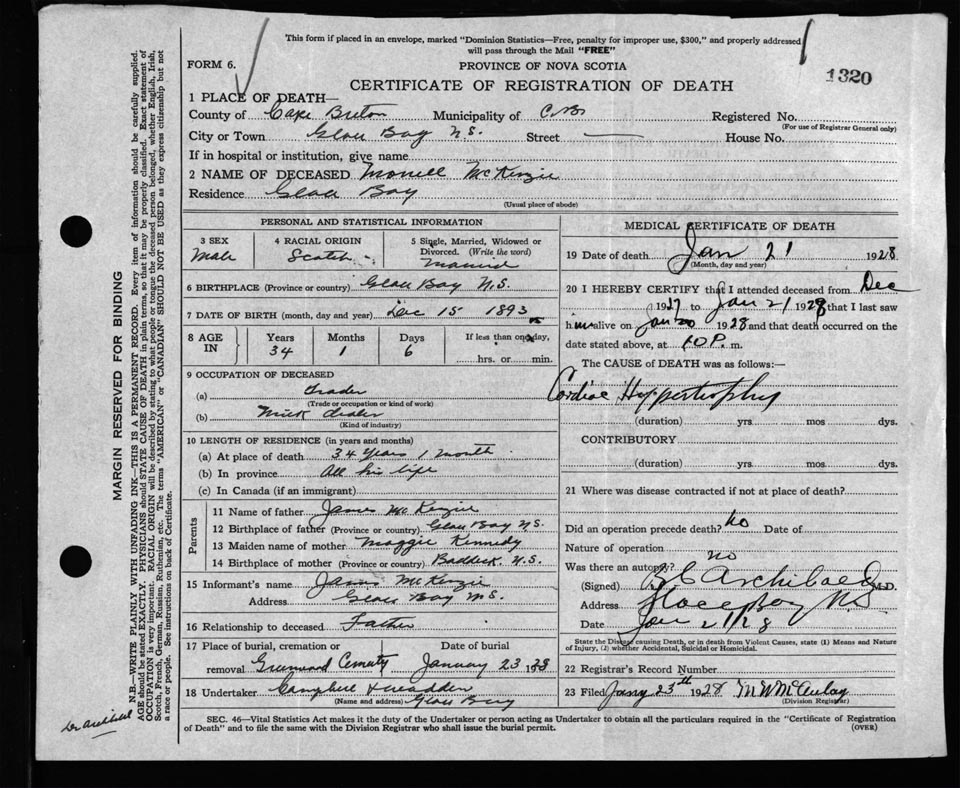 This form if placed in an envelope, marked "Dominion Statistics—Free, penalty for improper use, $300," and properly addressed
will pass through the Mail "FREE"
FORM 6.
PROVINCE OF NOVA SCOTIA
1320
CERTIFICATE OF REGISTRATION OF DEATH
1 PLACE OF DEATH—
County of Cape Breton Municipality of C.B. Registered No.
(For use of Registrar General only)
City or Town Glace Bay N.S. Street — House No.
If in hospital or institution, give name
2 NAME OF DECEASED McKenzie
Residence Glace Bay
(Usual place of abode)
PERSONAL AND STATISTICAL INFORMATION
3 SEX
Male
4 RACIAL ORIGIN
Scotch
5 Single, Married, Widowed or
Divorced. (Write the word)
Married
6 BIRTHPLACE (Province or country) Glace Bay N.S.
7 DATE OF BIRTH (month, day and year) Dec 15 1893
8 AGE IN
Years
34
Months
1
Days
6
If less than one day,
hrs. or min.
9 OCCUPATION OF DECEASED
(a) Trader
(Trade or occupation or kind of work)
(b) dealer
(Kind of industry)
10 LENGTH OF RESIDENCE (in years and months)
(a) At place of death 34 Years 1 month
(b) In province All his life
(c) In Canada (if an immigrant)
Parents
11 Name of father James McKenzie
12 Birthplace of father (Province or country) Glace Bay N.S.
13 Maiden name of mother Maggie Kennedy
14 Birthplace of mother (Province or country) Baddeck N.S.
15 Informant's name James McKenzie
Address Glace Bay N.S.
16 Relationship to deceased Father
17 Place of burial, cremation or Date of burial
removal Greenwood Cemetery January 23 1928
18 Undertaker Campbell &
(Name and address) Glace Bay
MEDICAL CERTIFICATE OF DEATH
19 Date of death Jan 21 1928
(Month, day and year)
20 I HEREBY CERTIFY that I attended deceased from Dec
1927 to Jan 21 1928 that I last saw
him alive on Jan 20 1928 and that death occurred on the
date stated above, at 10 P. m.
The CAUSE of DEATH was as follows:—
Cardiac Hypertrophy
(duration) yrs. mos dys.
CONTRIBUTORY
(duration) yrs. mos. dys.
21 Where was disease contracted if not at place of death?
Did an operation precede death? No Date of
Nature of operation
Was there an autopsy? no
(Signed) Archibald M.D.
Address Glace Bay NS
Date Jan 21/28
State the Disease causing Death, or in death from Violent Causes, state (1) Means and Nature
of Injury, (2) whether Accidental, Suicidal or Homicidal.
22 Registrar's Record Number
23 Filed Jany 23th 1928 M W McAulay
(Division Registrar)
SEC. 46—Vital Statistics Act makes it the duty of the Undertaker or person acting as Undertaker to obtain all the particulars required in the "Certificate of Registration
of Death" and to file the same with the Division Registrar who shall issue the burial permit.
(OVER)
MARGIN RESERVED FOR BINDING
N.B.—WRITE PLAINLY WITH UNFADING INK—THIS IS A PERMANENT RECORD. Every item of information should be carefully supplied.
AGE should be stated EXACTLY. PHYSICIANS should STATE CAUSE OF DEATH in plain terms, so that it may be properly classified. Exact statement of
OCCUPATION is very important. RACIAL ORIGIN will be described by stating to what people or tongue the deceased person belonged, whether English, Irish,
Scotch, French, German, Russian, Ruthenian, etc. The terms "AMERICAN" or "CANADIAN" SHOULD NOT BE USED as they express citizenship but not
a race or people. See instructions on back of Certificate.
Dr Archibald